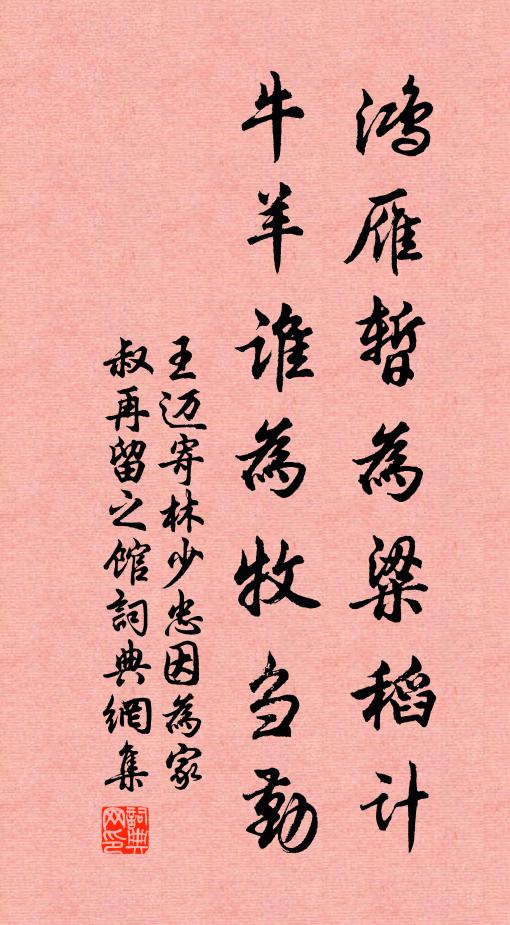 鸿雁暂為粱稻计
牛羊谁為牧刍勤
王迈寄林少忠因為家
叔再留之馆詞典網集
詞典网印